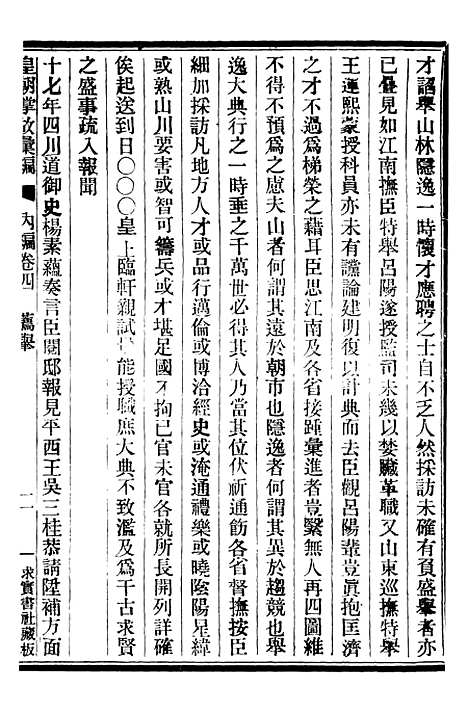 才詔舉山林隱逸一時懷才應聘之士自不乏人然採訪未確有負盛舉者亦
已疊見如江南撫臣特舉呂陽遂授監司未幾以婪贓革職又山東巡撫特舉
王運熙蒙授科員亦未有讜論建明復以計典而去臣觀呂陽輩豈眞抱匡濟
之才不過爲梯榮之藉耳臣思江南及各省接踵彙進者豈繄無人再四圖維
不得不預爲之慮夫山者何謂其遠於朝市也隱逸者何謂其異於趨競也舉
逸大典行之一時垂之千萬世必得其人乃當其位伏祈通飭各省督撫按臣
細加採訪凡地方人才或品行邁倫或博洽經史或淹通禮樂或曉陰陽星緯
或熟山川要害或智可籌兵或才堪足國不拘已官未官各就所長開列詳確
俟起送到日〇〇〇皇上臨軒親試 能授職庶大典不致濫及爲千古求賢
之盛事疏入報聞
十七年四川道御史楊素蘊奏言臣閱邸報見平西王吳三桂恭請陞補方面
皇朝掌故彙編 內編卷四 薦舉 二一 求實書社藏板